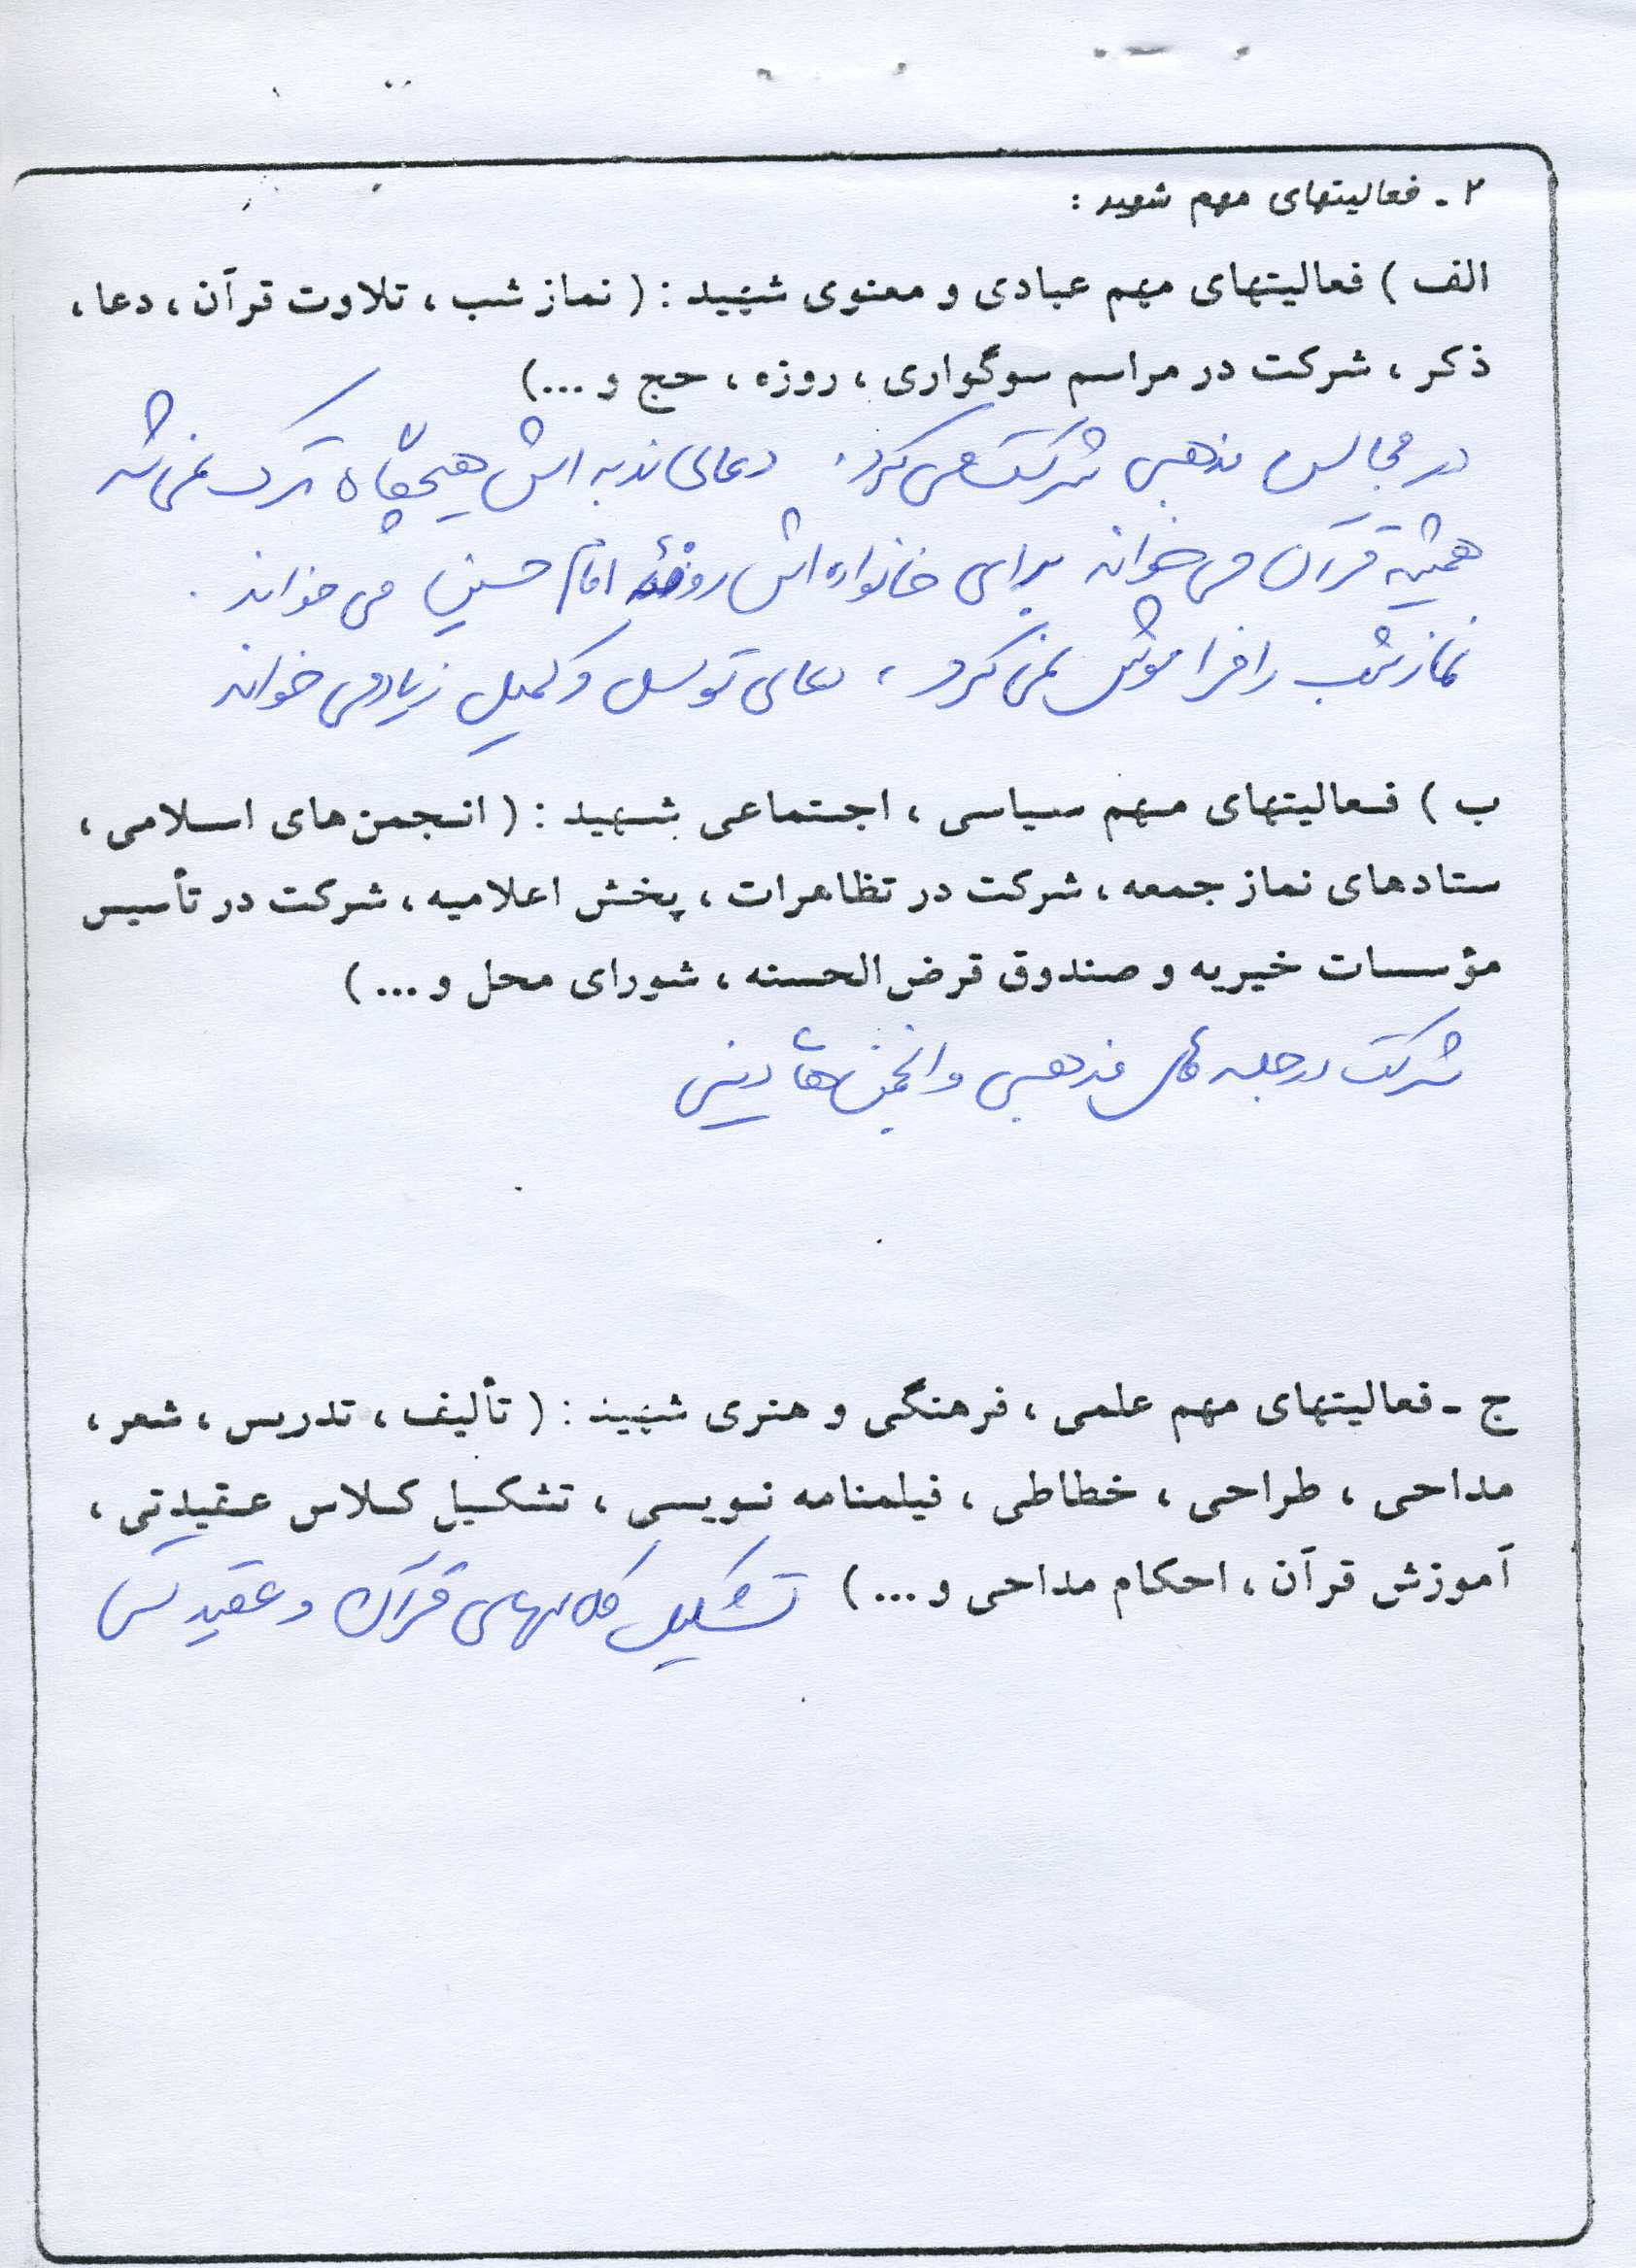 ۲ - فعالیتهای مهم شهید :
الف ) فعالیتهای مهم عبادی و معنوی شهید : ( نماز شب ، تلاوت قرآن ، دعا ،
ذکر ، شرکت در مراسم سوگواری ، روزه ، حج و ...)
در مجالس مذهبی شرکت می کرد. دعای ندبه اش هیچگاه ترک نمی شد
همیشه قرآن می خواند برای خانواده اش روضهٔ امام حسین می خواند .
نماز شب را فراموش نمی کرد ، دعای توسل و کمیل زیاد می خواند
ب ) فعالیتهای مهم سیاسی ، اجتماعی شهید : ( انجمن های اسلامی ،
ستادهای نماز جمعه ، شرکت در تظاهرات ، پخش اعلامیه ، شرکت در تأسیس
مؤسسات خیریه و صندوق قرض الحسنه ، شورای محل و ... )
شرکت در جلسه های مذهبی و انجمن ها دینی
ج - فعالیتهای مهم علمی ، فرهنگی و هنری شهید : ( تألیف ، تدریس ، شعر ،
مداحی ، طراحی ، خطاطی ، فیلمنامه نویسی ، تشکیل کلاس عقیدتی ،
آموزش قرآن ، احکام مداحی و ... ) تشکیل کلاسهای قرآن و عقیدتی